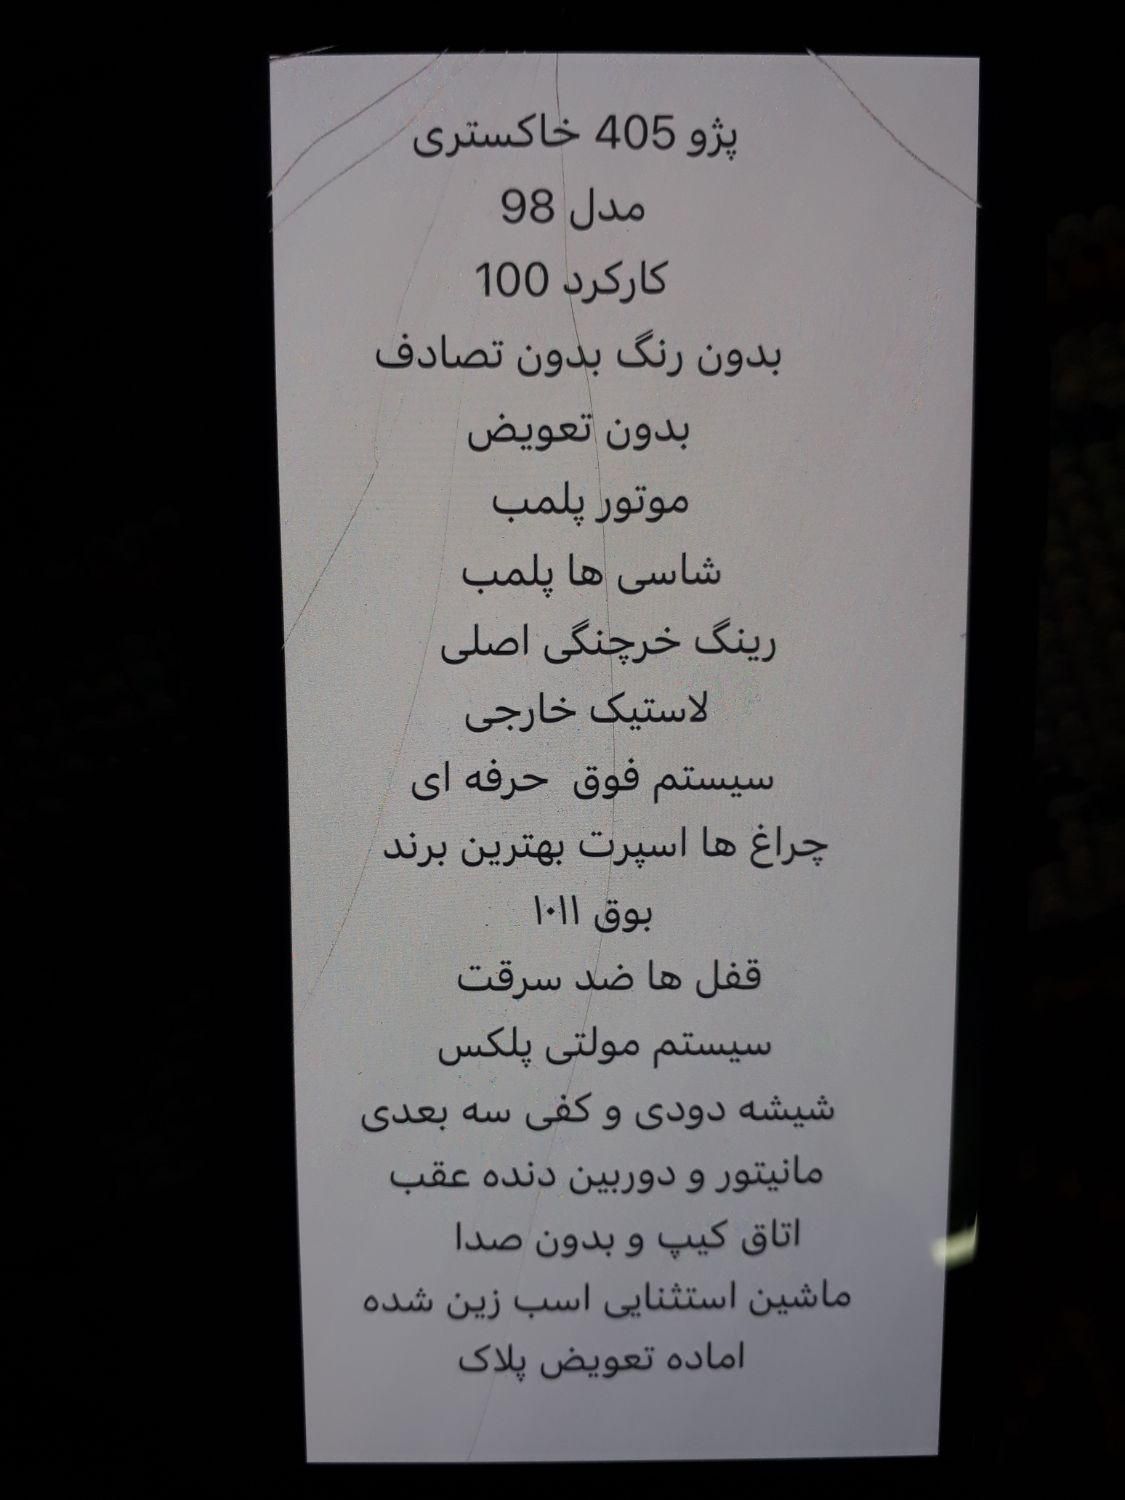 پژو 405 خاکستری
مدل 98
کارکرد 100
بدون رنگ بدون تصادف
بدون تعویض
موتور پلمب
شاسی ها پلمب
رینگ خرچنگی اصلی
لاستیک خارجی
سیستم فوق  حرفه ای
چراغ ها اسپرت بهترین برند
بوق ۱۰۱۱
قفل ها ضد سرقت
سیستم مولتی پلکس
شیشه دودی و کفی سه بعدی
مانیتور و دوربین دنده عقب
اتاق کیپ و بدون صدا
ماشین استثنایی اسب زین شده
اماده تعویض پلاک